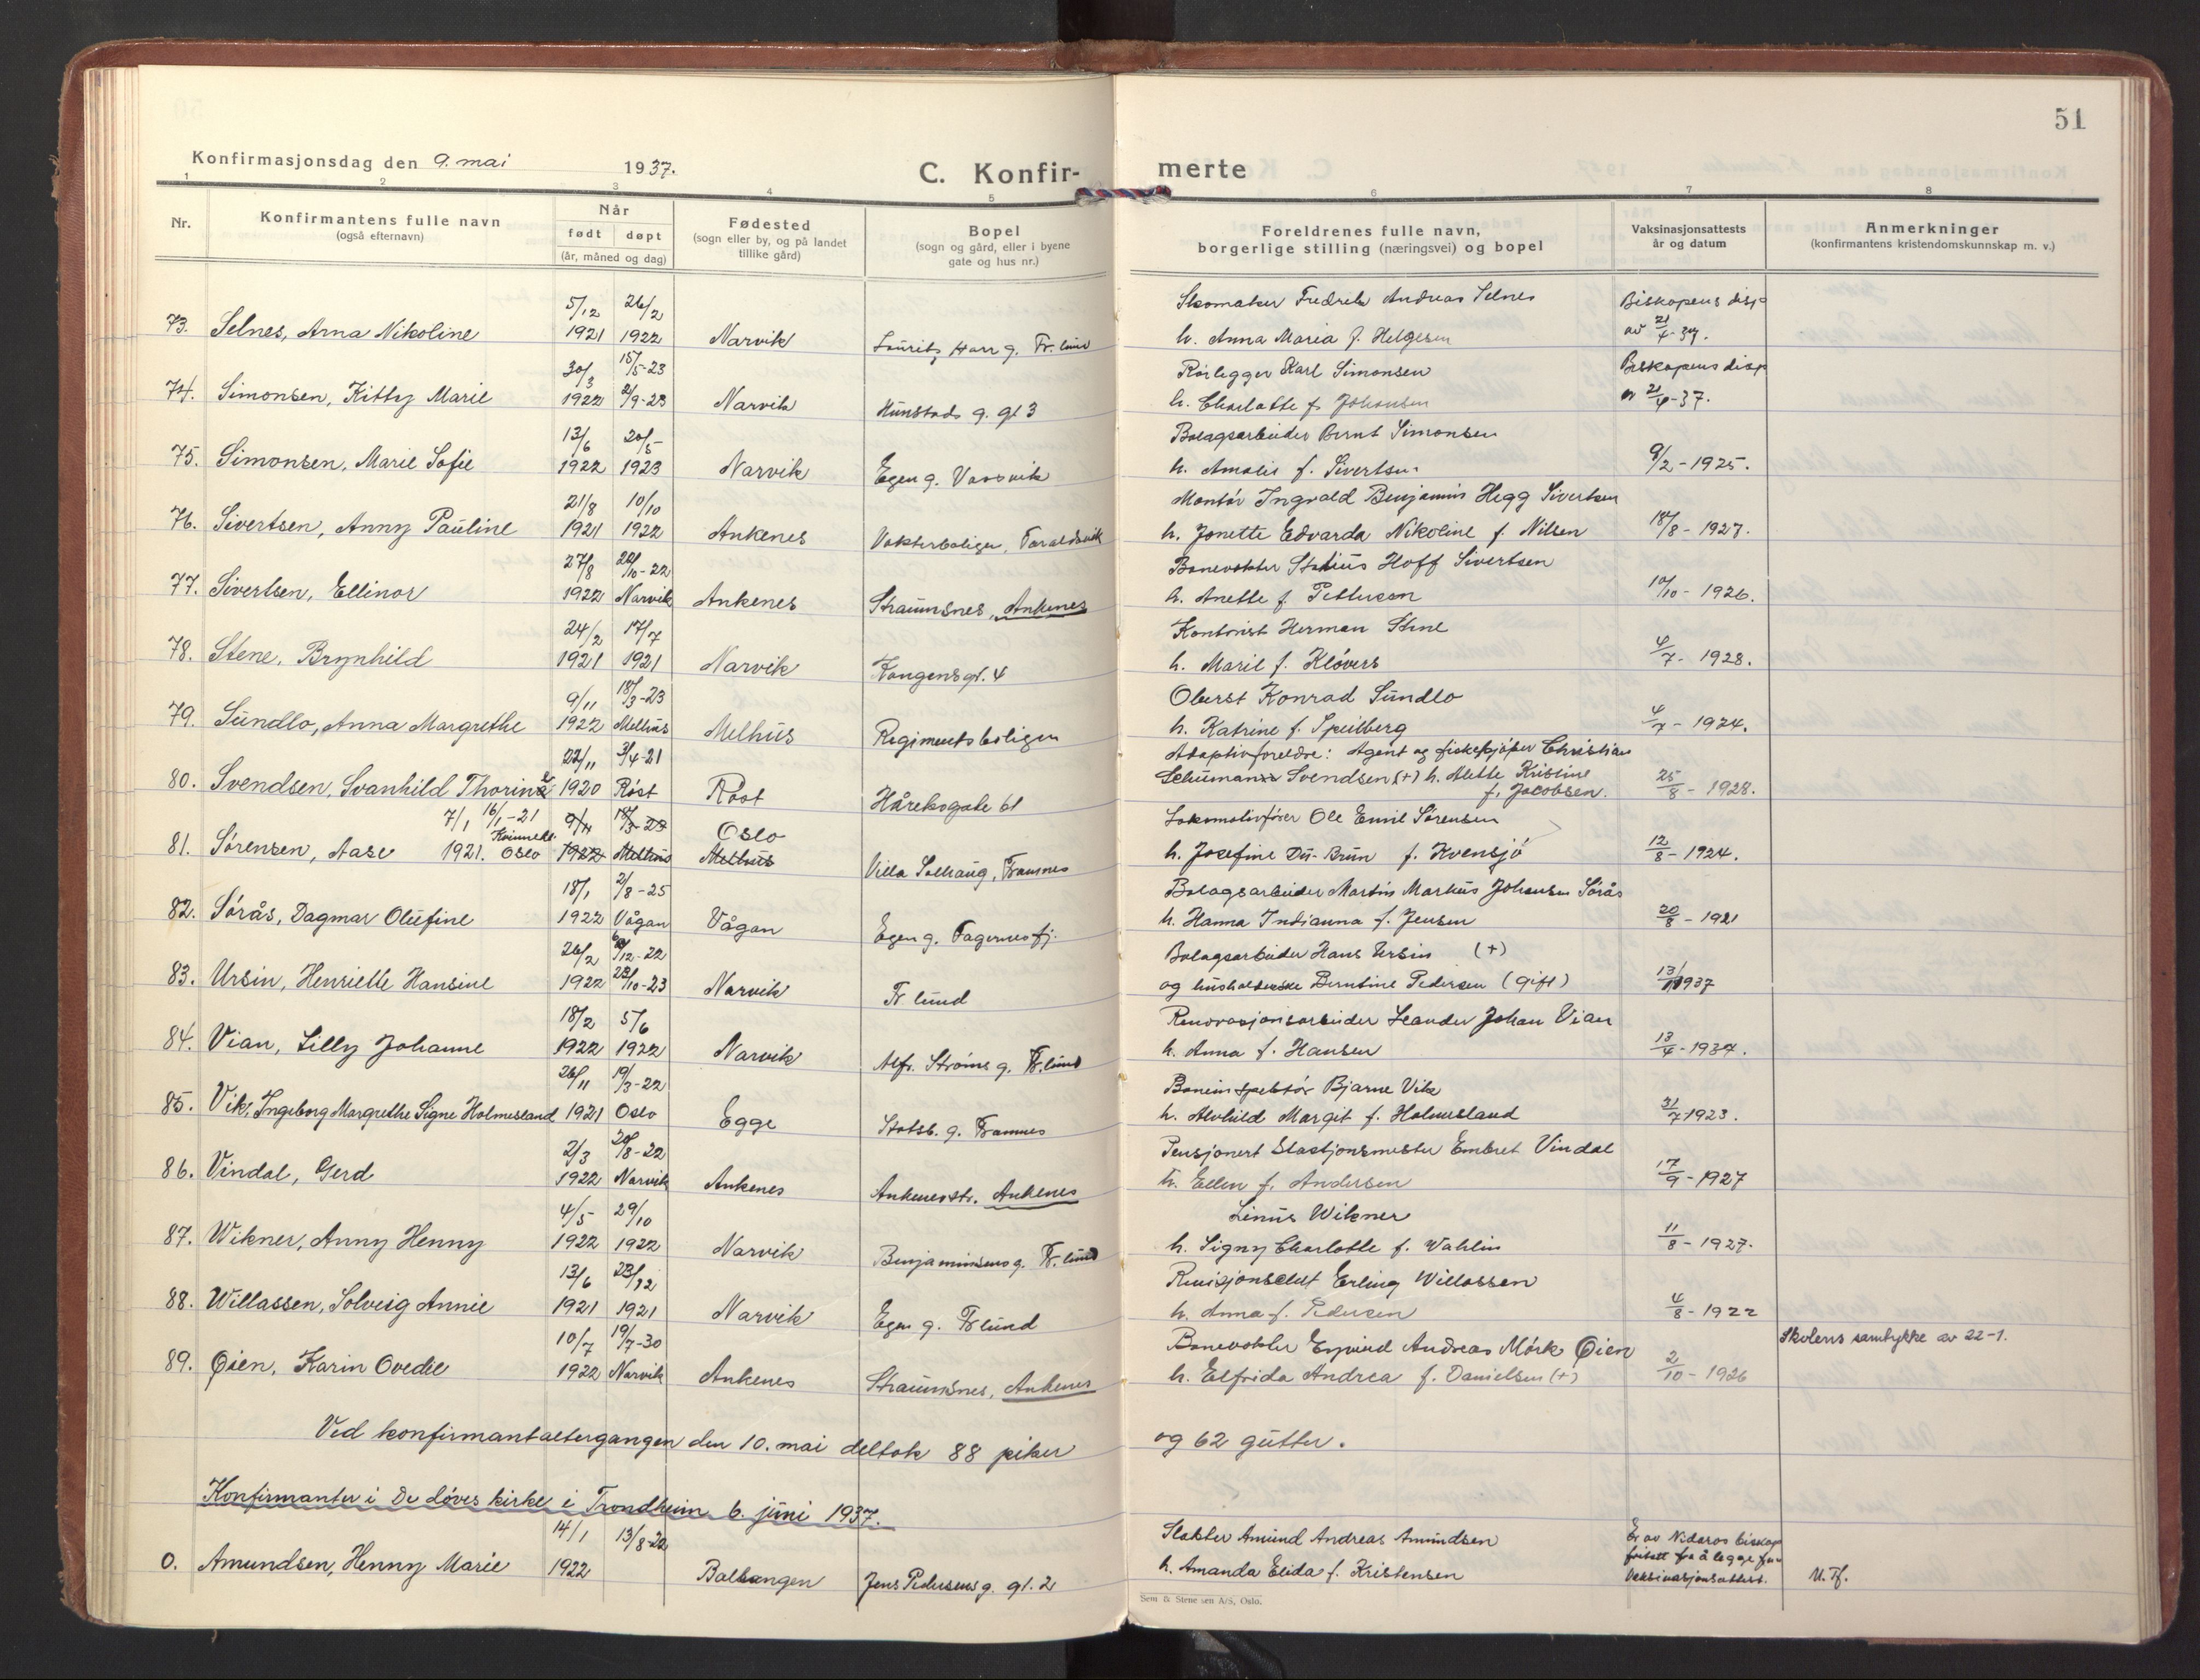 51
Konfirmasjonsdag den 9. mai 1937. C. Konfirmerte
1 2 3 4 5 6 7 8
Nr. Konfirmantens fulle navn (også efternavn) Når født døpt (år, måned og dag) Fødested (sogn eller by, og på landet tillike gård) Bopel (sogn og gård, eller i byene gate og hus nr.) Foreldrenes fulle navn, borgerlige stilling (næringsvei) og bopel Vaksinasjonsattests år og datum Anmerkninger (konfirmantens kristendomskunnskap m. v.)
5/12 26/2 Skomaker Fredrik Andreas Selnes Biskopens disp
73. Selnes, Arna Nikoline 1921 1922 Narvik Laurits Harr g. Fr.lund h. Anna Maria f. Helgesen av 21/4-37.
30/3 15/5-23 Rørlegger Karl Simonsen Biskopens disp
74. Simonsen, Kitty Marie 1922 2/9-23 Narvik Kunstads g. gt 3 h. Charlotte f. Johansen av 21/4-37.
13/6 20/5 Bolagsarbeider Bernt Simonsen
75. Simonsen, Marie Sofie 1922 1923 Narvik Egen g. Vassvik h. Amalie f. Sivertsen 9/2-1925.
21/8 10/10 Montør Ingvald Benjamin Hegg Sivertsen
76. Sivertsen, Anny Pauline 1921 1922 Ankenes Vokterboligen, Taraldsvik h. Jonette Edvarda Nikoline f. Nilsen 18/8-1927.
27/8 22/10-22 Banevokter Statius Hoff Sivertsen
77. Sivertsen, Ellinor 1922 Narvik Ankenes Straumsnes, Ankenes h. Anette f. Pettersen 10/10-1926.
24/2 17/7 Kontorist Herman Stene
78. Stene, Brynhild 1921 1921 Narvik Kongensgt. 4 h. Marie f. Kløvers 4/7-1928.
9/11 18/3-23 Oberst Konrad Sundlo
79. Sundlo, Anna Margrethe 1922 Melhus Melhus Regimentsboligen h. Katrine f. Speilberg 4/7-1924.
22/11 3/4-21 Adoptivforeldre: Agent og fiskekjøper Christian
80. Svendsen, Svanhild Thorine 1920 Røst Røst Håreksgate 61 Schumann Svendsen (+) h. Mette Kristine f. Jacobsen. 25/8-1928.
7/1 16/1-21 9/11 18/3-23 Oslo Lokomotivfører Ole Emil Sørensen
81. Sørensen, Aase 1921. Kvinnekl. Oslo 1922 Melhus Melhus Villa Solhaug, Framnes h. Josefine Du-Brun f. Kvensjø 12/8-1924.
18/1 2/8-25 Bolagsarbeider Martin Markus Johansen Sørås
82. Sørås, Dagmar Olufine 1922 Vågan Vågan Egen g. Fagernesfj. h. Hanna Indianna f. Jensen 20/8-1921
26/2 /12-22 Bolagsarbeider Hans Ursin (+)
83. Ursin, Henriette Hansine 1922 28/10-23 Narvik Fr lund og husholderske Berntine Pedersen (gift) 13/ 1937
18/2 5/6 Renovasjonsarbeider Leander Johan Vian
84. Vian, Lilly Johanne 1922 1922 Narvik Alfr. Strøms g. Fr.lund h. Anna f. Hansen 13/4-1937.
26/11 19/3-22 Baneinspektør Bjarne Vik
85. Vik, Ingeborg Margrethe Signe Holmesland 1921 Oslo Egge Statsb. g. Framnes h. Alvhild Margit f. Holmesland 31/7 1923.
2/3 20/8-22 Pensjonert Stasjonsmester Embret Vindal
86. Vindal, Gerd 1922 Narvik Ankenes Ankenesstr. Ankenes h. Ellen f. Andersen 17/9-1927
4/5 29/10 Linus Wikner
87. Wikner, Anny Henny 1922 1922 Narvik Benjaminsens g. Fr.lund h. Signy Charlotte f. Wahlin 11/8-1927.
13/6 23/12 Revisjonschef Erling Willassen
88. Willassen, Solveig Annie 1921 1921 Narvik Egen g. Fr lund h. Anna f. Pedersen 4/8-1922
10/7 19/7-30 Banevokter Eyvind Andreas Mørk Øien Skolens samtykke av 22-1.
89. Øien, Karin Ovedie 1922 Narvik Ankenes Straumsnes, Ankenes h. Elfrida Andrea f. Danielsen (+) 2/10-1926
Ved konfirmantaltergangen den 10. mai deltok 88 piker og 62 gutter.
Konfirmanter i De døves kirke i Trondheim 6. juni 1937.
14/1 13/8-22 Slakter Amund Andreas Amundsen Er av Nidaros biskop
0. Amundsen, Henny Marie 1922 Balsangen Jens Pedersens g. gt. 2 h. Amanda Elida f. Kristensen fritatt fra å legge frem vaksinasjonsattest. U. Tf.
Sem & Stenersen A/S, Oslo.